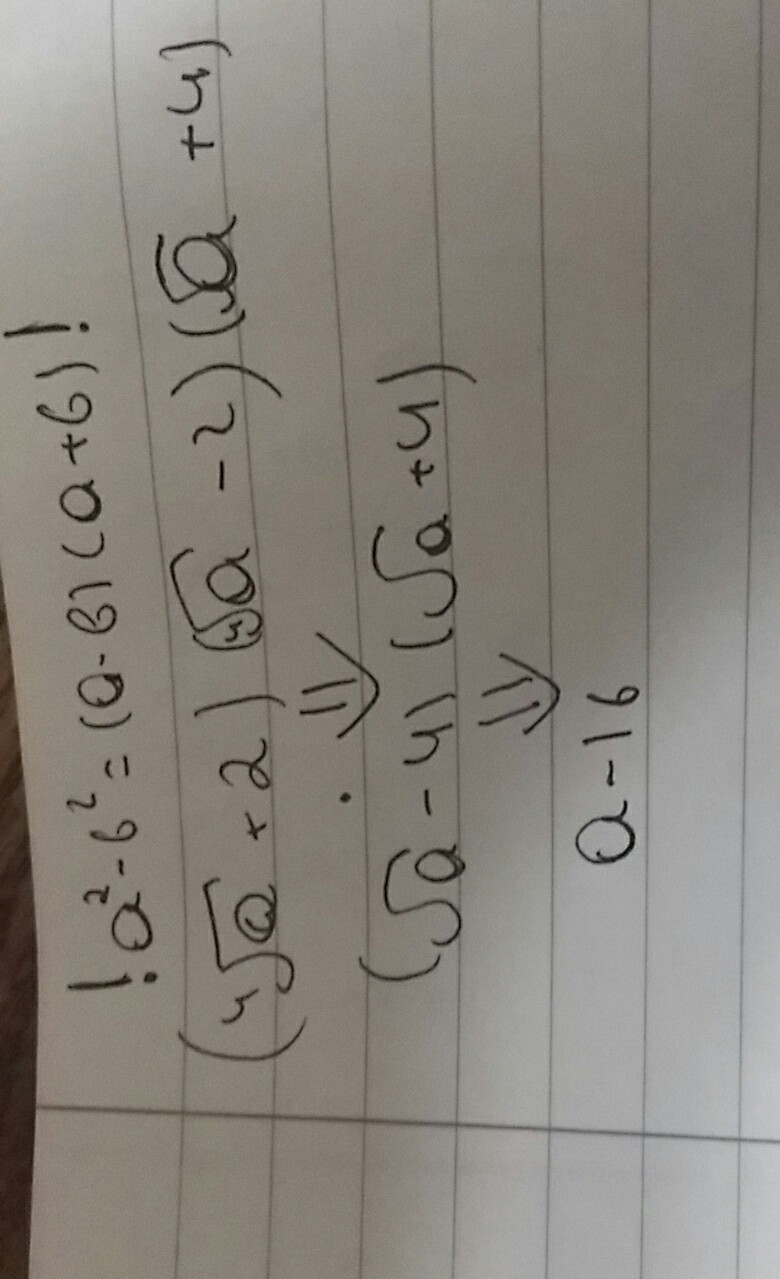 ! a² - b² = (a - b) (a + b) !
(⁴√a + 2) (⁴√a - 2) (√a + 4)
⇒
(√a - 4) (√a + 4)
⇒
a - 16